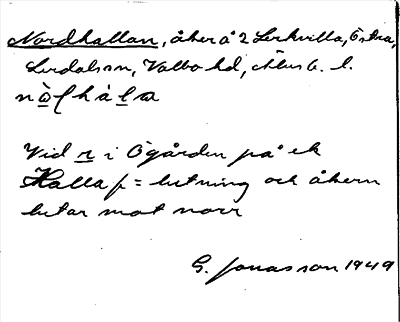 Nordhallan, åker å 2 Lerkvilla, Östra,
Lerdalson, Valbo hd, Älvsb. l.
nò̲ɽhà̲ɽa

Vid r i Ögården på ek
Halla f = lutning och åkern
lutar mot norr

G. Jonasson 1949